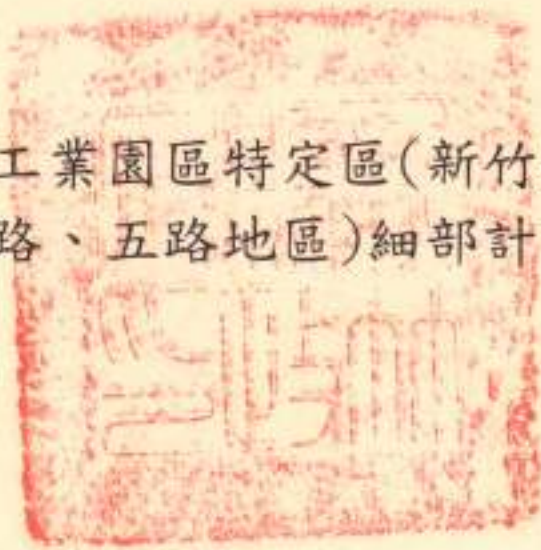 工業園區特定區(新竹
路、五路地區)細部計